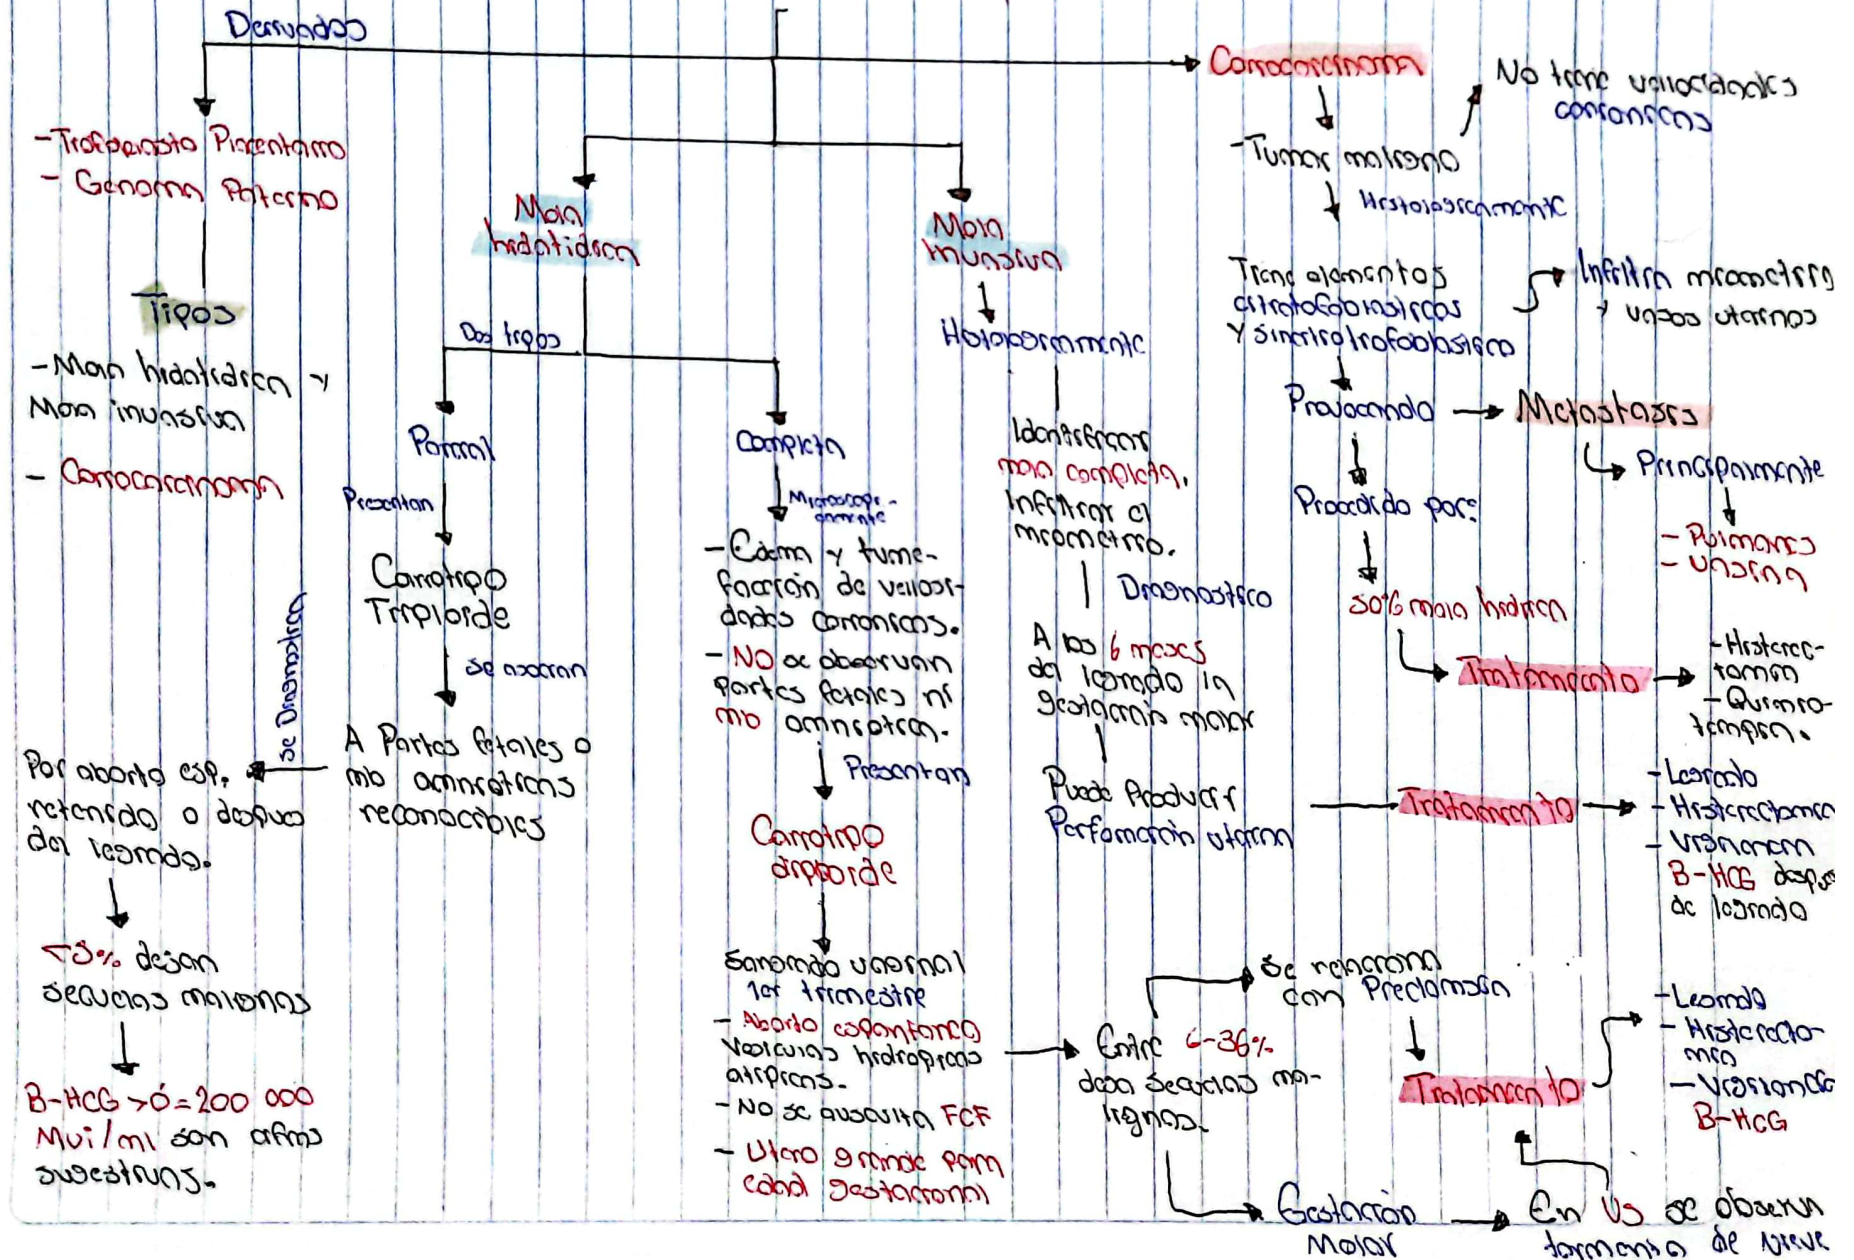 Derivados
-Trofoblasto Placentario
- Genoma Paterno
Tipos
-Mola hidatidica y
Mola invasiva
- Coriocarcinoma
Mola
hidatidica
Dos tipos
Parcial
Presentan
Cariotipo
Triploide
Se asocian
A Partes fetales o
mb amnioticas
reconocibles
Se Diagnostica
Por aborto esp.
retenido o despues
del legrado.
<5% dejan
secuelas malignas
B-HCG >ó=200 000
Mui/ml son cifras
sugestivas.
Completa
Microscopi-
camente
-Edema y tume-
facción de vellosi-
dades corionicas.
-NO se observan
partes fetales ni
mb amniotica.
Presentan
Cariotipo
diploide
Sangrado vaginal
1er trimestre
- Aborto espontaneo
Vesiculas hidropicas
atipicas.
-No se ausculta FCF
- Utero grande para
edad gestacional
Entre 6-36%
deja secuelas ma-
lignas.
Se relaciona
con Preclamsia
Tratamiento
-Legrado
- Histerecto-
mia
- Vigilancia
B-HCG
Gestación
Molar
En US se observa
tormenta de nieve
Mola
invasiva
Histologicamente
Identificar
mola completa.
Infiltrar el
miometrio.
Diagnostico
A los 6 meses
del legrado in
gestación molar
Puede Producir
Perforación uterina
Tratamiento
-Legrado
-Histerectomia
- Vigilancia
B-HCG despues
de legrado
Coriocarcinoma
-Tumor maligno
No tiene vellocidades
corionicas
Histologicamente
Tiene elementos
citotrofoblasticos
y sincitiotrofoblastico
Infiltra miometrio
y vasos uterinos
Provocando
Metastasis
Principalmente
- Pulmones
- Vagina
Procedido por:
50% mola hidica
Tratamiento
-Histerec-
tomia
-Quimio-
terapia.